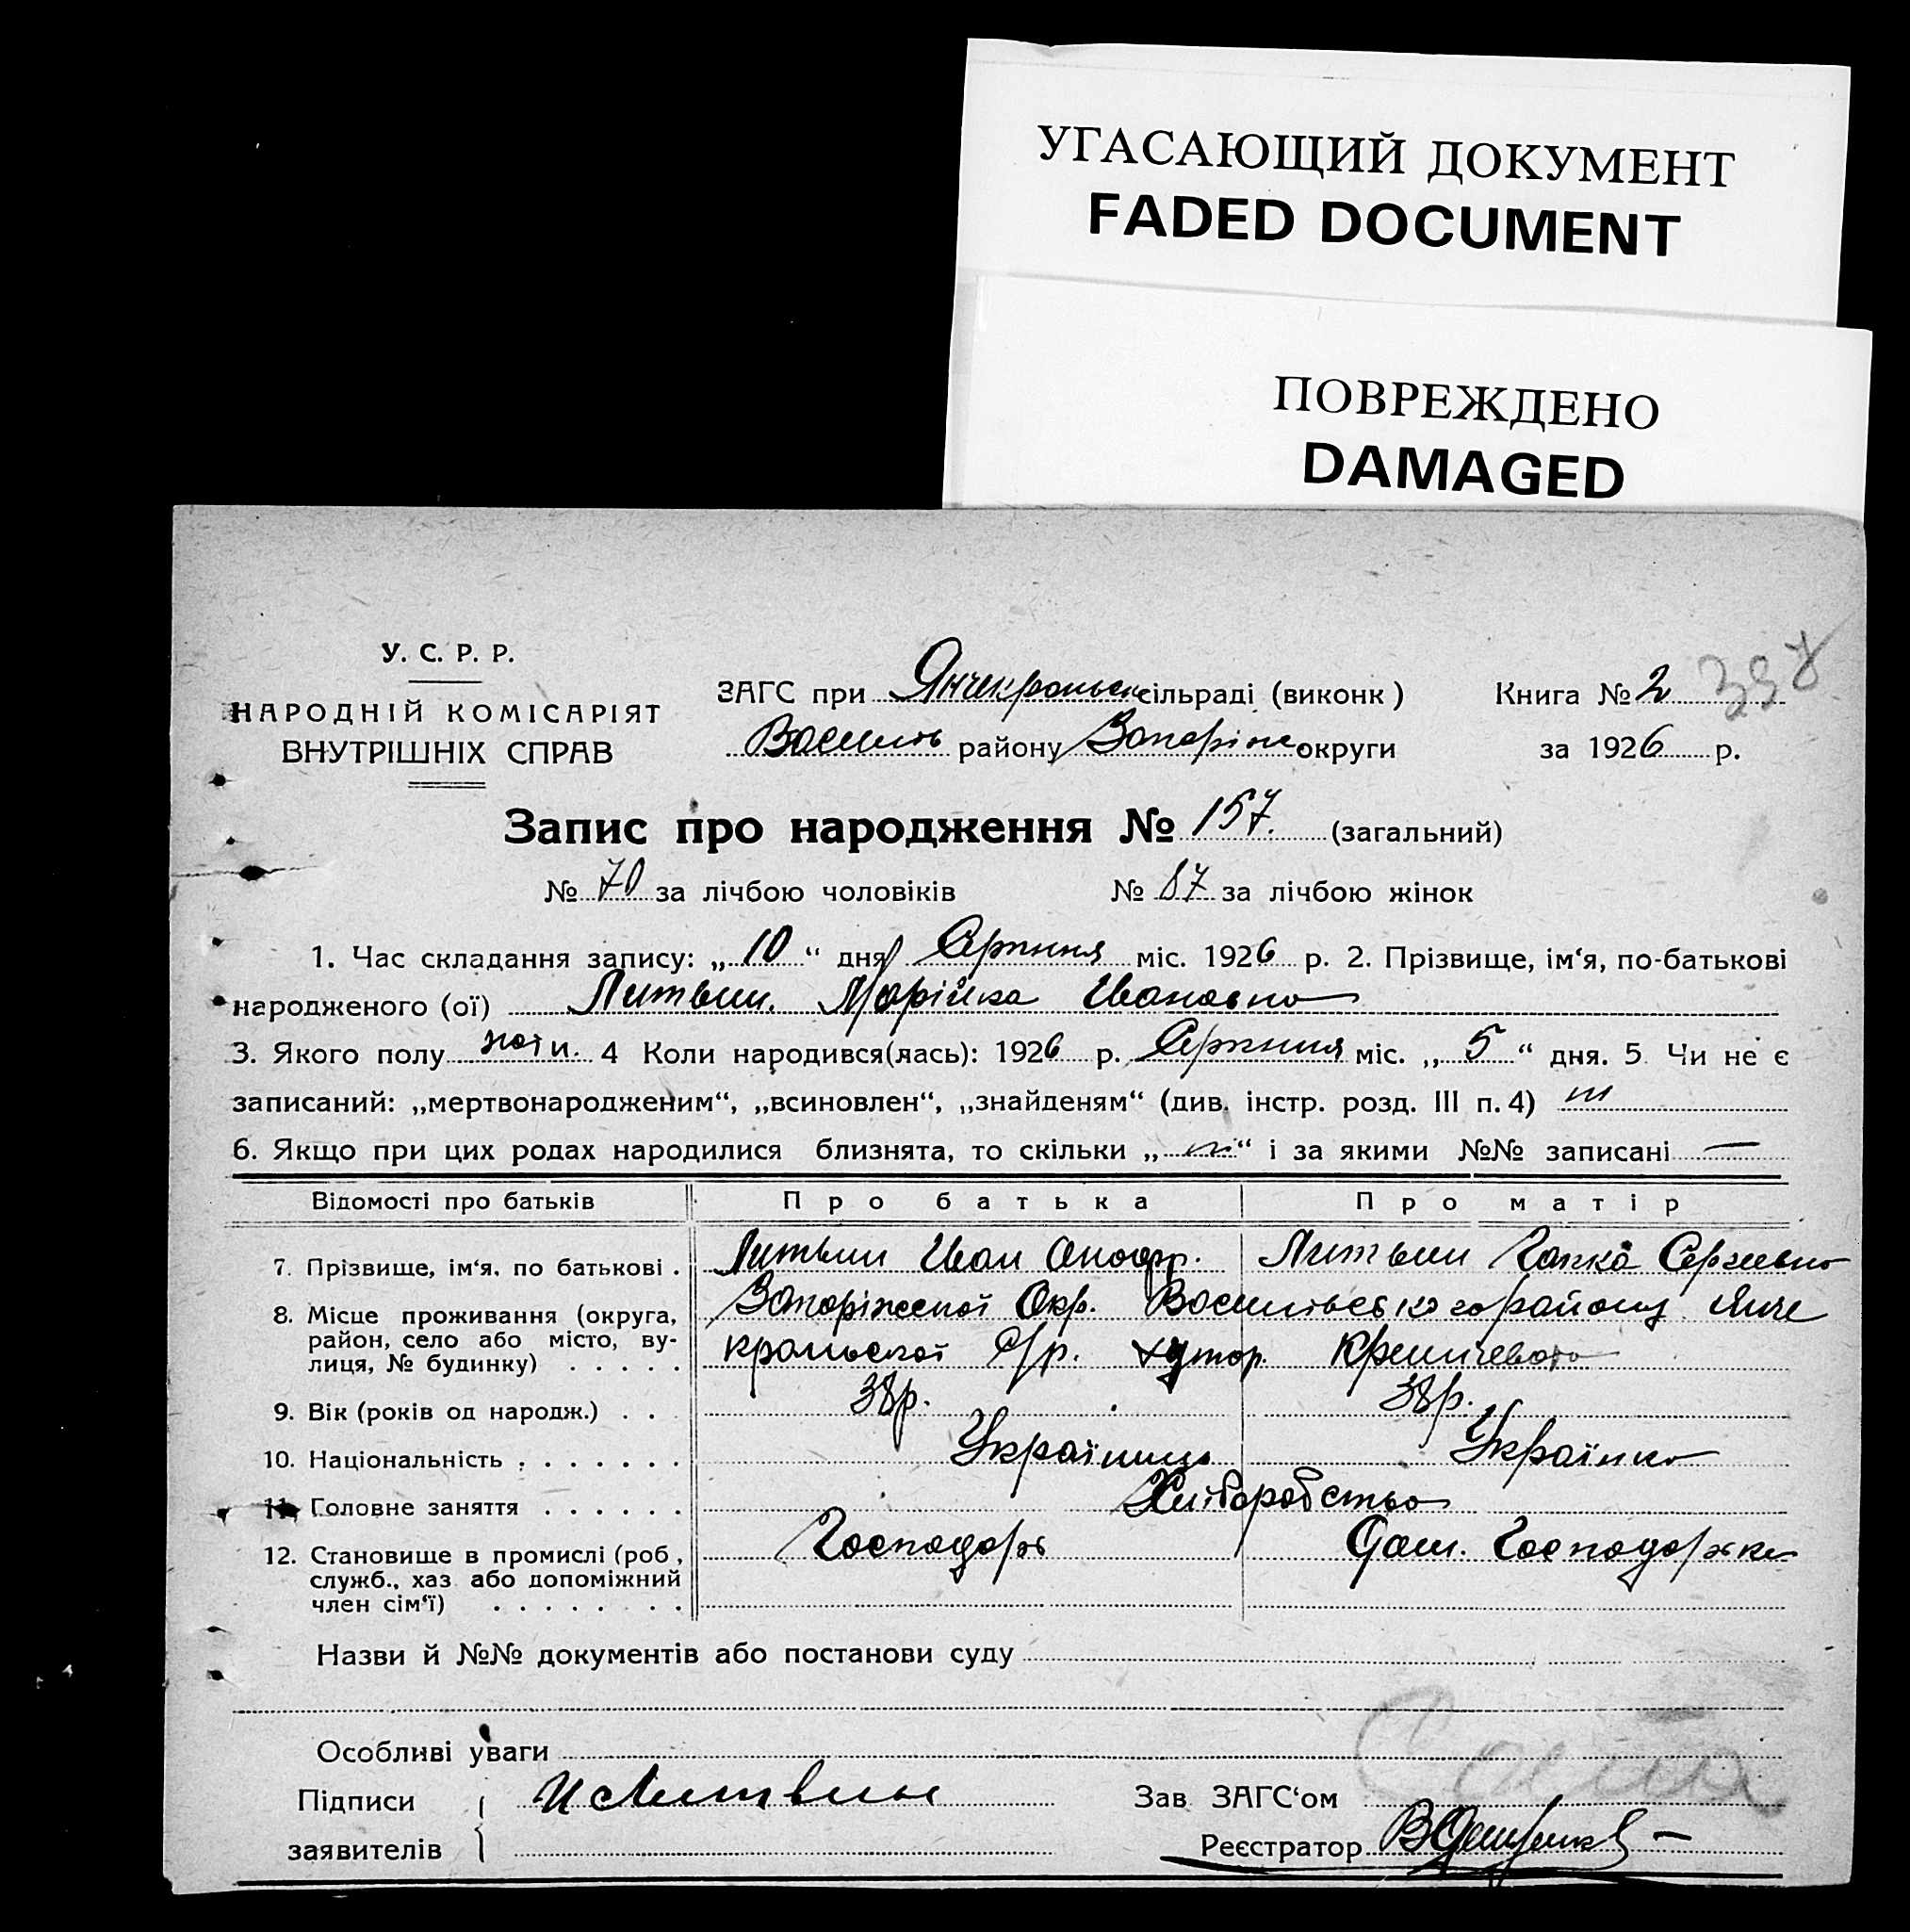 УГАСАЮЩИЙ ДОКУМЕНТ
FADED DOCUMENT
ПОВРЕЖДЕНО
DAMAGED
У. С. Р. Р.
НАРОДНІЙ КОМІСАРІЯТ
ВНУТРІШНІХ СПРАВ
ЗАГС при Янчекральськ сільраді (виконк)
Василів району Запоріж округи
Книга № 2
за 1926 р.
Запис про народження № 157. (загальний)
№ 70 за лічбою чоловіків № 87 за лічбою жінок
1. Час складання запису: „ 10 “ дня Серпння міс. 1926 р. 2. Прізвище, ім‘я, по-батькові
народженого (ої) Литвин. Марійка Ивановна
3. Якого полу жоти. 4 Коли народився(лась): 1926 р. Серпння міс. „ 5 “ дня. 5 Чи не є
записаний: „мертвонародженим“, „всиновлен“, „знайденям“ (див. інстр. розд. III п. 4) ні
6. Якщо при цих родах народилися близнята, то скільки „ ні “ і за якими №№ записані —
Відомості про батьків Про батька Про матір
7. Прізвище, ім‘я, по батькові . Литвин Иван Онофр. Литвин Гапка Сергієвна
8. Місце проживання (округа, район, село або місто, вулиця, № будинку) . . . . . Запоріжської Окр. Васильевського району Янче
кральської С/р. хутор. Кремичевого
9. Вік (років од народж.) . . 38р. 38р.
10. Національність . . . . . . . Українець Українка
11. Головне заняття . . . . . . Хліборобство
12. Становище в промислі (роб, служб., хаз або допоміжний член сім‘ї) . . . . . . . . Господарь Дом. Господарка
Назви й №№ документів або постанови суду
Особливі уваги
Підписи ИЛитвин Зав ЗАГС‘ом
заявителів Реєстратор